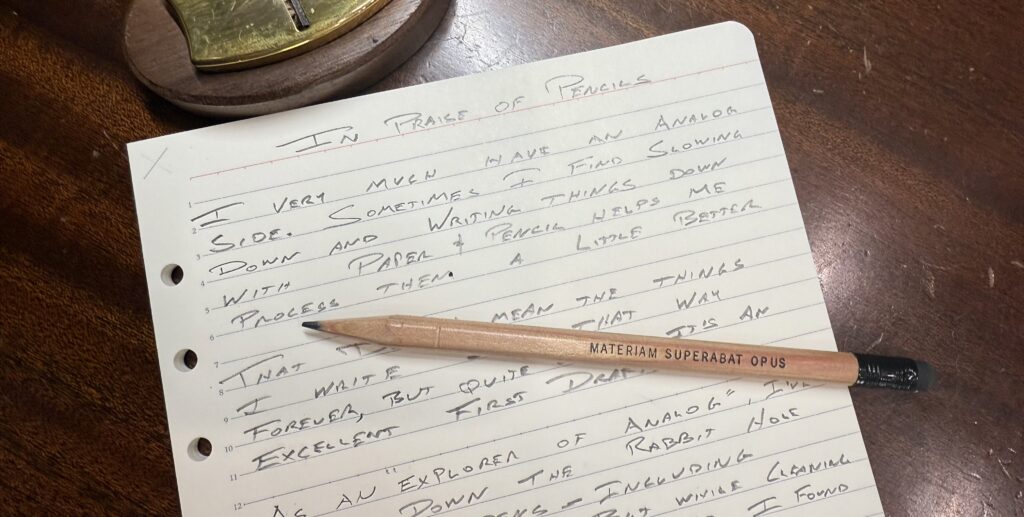 IN PRAISE OF PENCILS
I VERY MUCH HAVE AN ANALOG
SIDE. SOMETIMES I FIND SLOWING
DOWN AND WRITING THINGS DOWN
WITH PAPER & PENCIL HELPS ME
PROCESS THEM A LITTLE BETTER
THAT MEAN THE THINGS
I WRITE THAT WAY
FOREVER, BUT QUITE IT'S AN
EXCELLENT FIRST
AS AN "EXPLORER OF ANALOG", I'VE
DOWN THE RABBIT HOLE
INCLUDING
BUT WHILE CLEANING
I FOUND
MATERIAM SUPERABAT OPUS
X
1
2
3
4
5
6
7
8
9
10
11
12